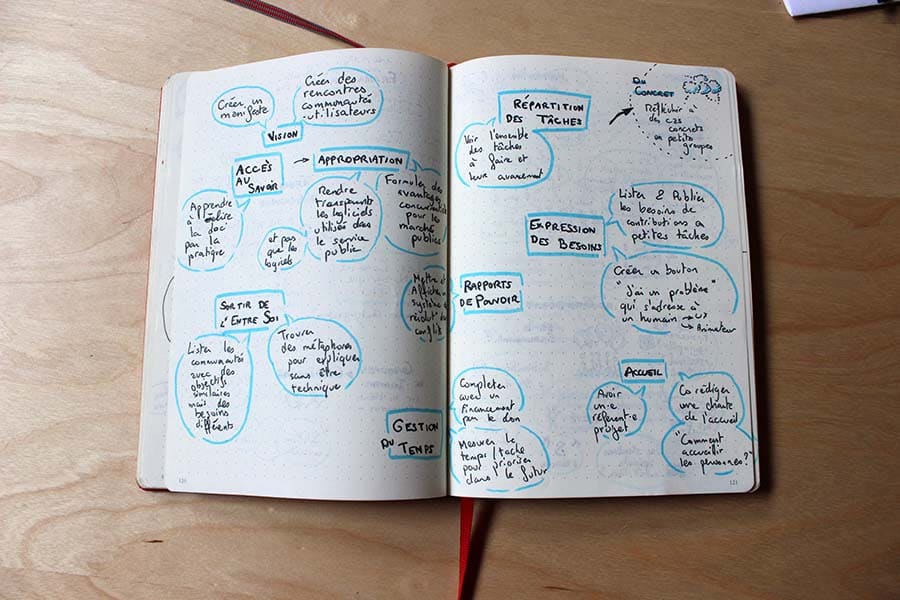 Créer un
manifeste
Créer des
rencontres
communautés
utilisateurs
VISION
ACCÈS
AU SAVOIR
→ APPROPRIATION
Apprendre
à écrire
la doc
par la
pratique
Rendre
transparents
les logiciels
utilisés dans
le service
public
et pas
que les
logiciels
Formuler des
avantages
pour les
marchés
publics
SORTIR DE
L'ENTRE SOI
Lister les
communautés
avec des
objectifs
similaires
mais des
besoins
différents
Trouver
des métaphores
pour expliquer
sans être
technique
Mettre et
Afficher un
système de
résolut° du
conflit
GESTION
DU TEMPS
120
RÉPARTITION
DES TÂCHES
Voir l'ensemble
des tâches
à faire et
leur avancement
DU
CONCRET
Réfléchir à
des cas
concrets
en petits
groupes
EXPRESSION
DES BESOINS
Lister & Publier
les besoins de
contributions à
petites tâches
Créer un bouton
"J'ai un problème"
qui s'adresse à
un humain
→ Animateur
RAPPORTS
DE POUVOIR
ACCUEIL
Avoir
un·e
référent·e
projet
Co rédiger
une charte
de l'accueil
"Comment
accueillir
les personnes?"
Compléter
avec un
financement
par le don
Mesurer le
temps/tâche
pour prioriser
dans le futur
121